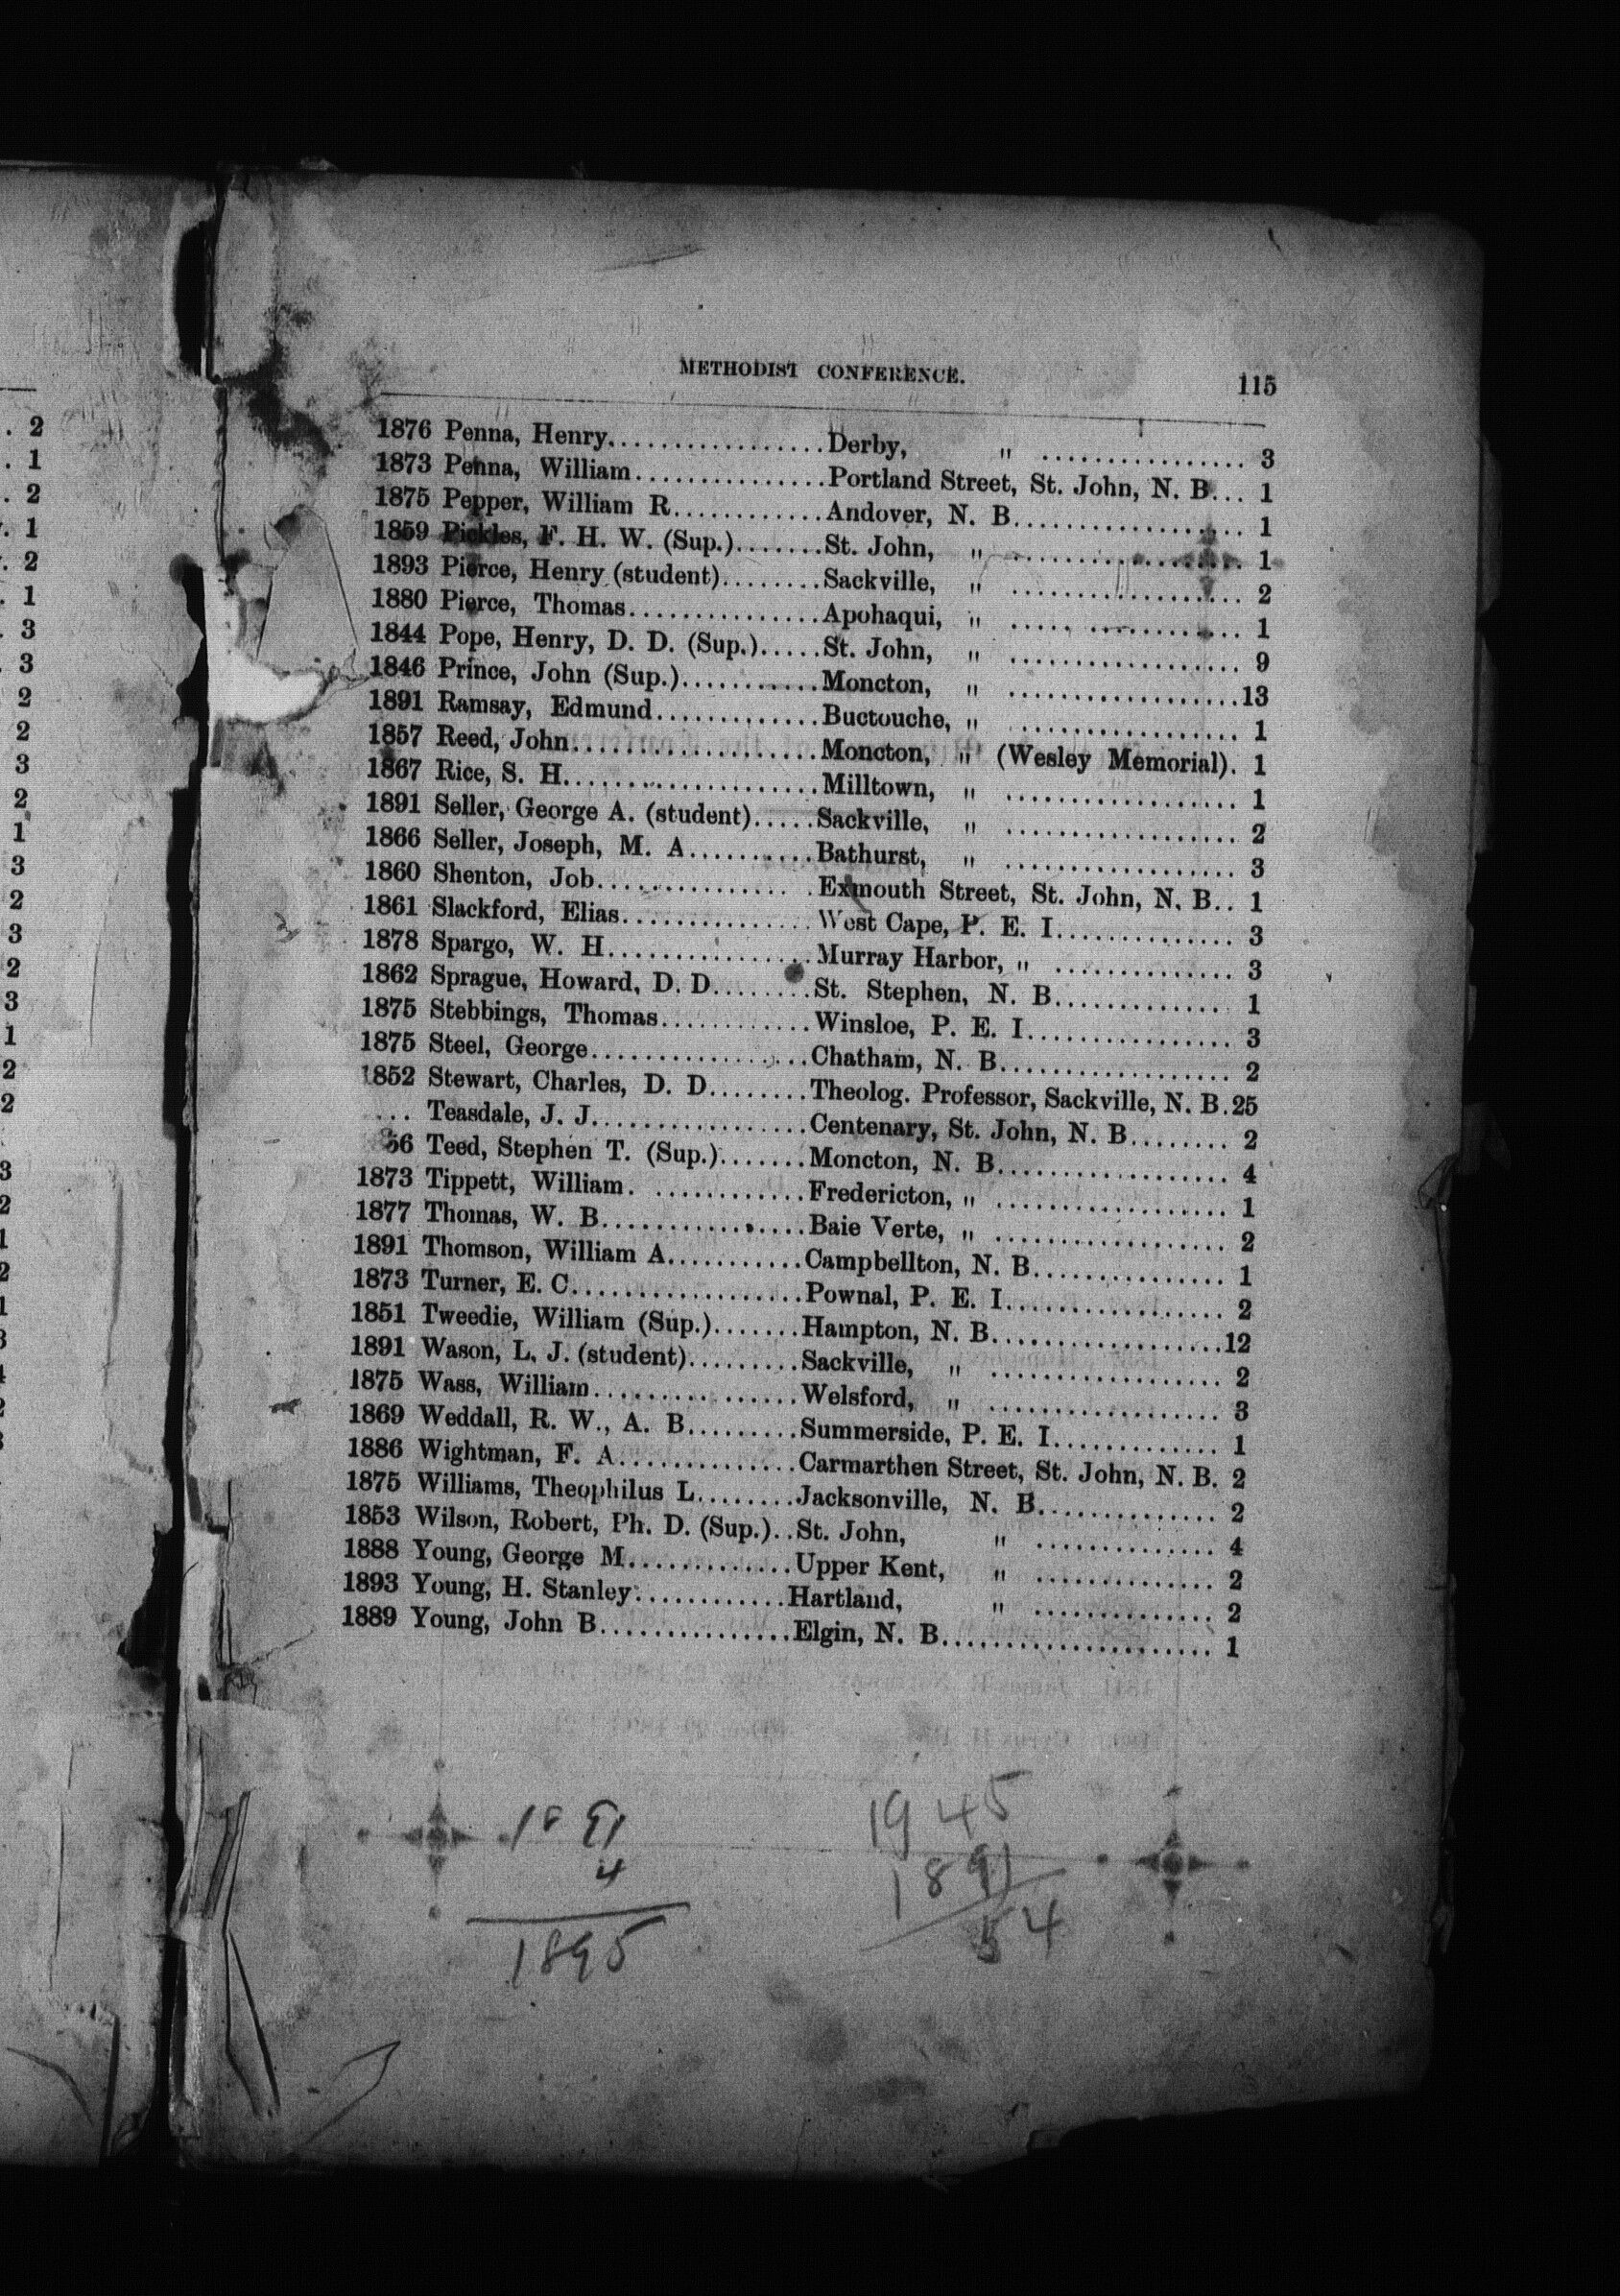 METHODIST CONFERENCE. 115
1876 Penna, Henry................Derby, " ................ 3
1873 Penna, William...............Portland Street, St. John, N. B... 1
1875 Pepper, William R............Andover, N. B.................. 1
1859 Pickles, F. H. W. (Sup.).......St. John, " .................. 1
1893 Pierce, Henry (student)........Sackville, " .................. 2
1880 Pierce, Thomas...............Apohaqui, " ..... ............ 1
1844 Pope, Henry, D. D. (Sup.).....St. John, " .................. 9
1846 Prince, John (Sup.)...........Moncton, " ..................13
1891 Ramsay, Edmund.............Buctouche, " ................. 1
1857 Reed, John...................Moncton, " (Wesley Memorial). 1
1867 Rice, S. H....................Milltown, " .................. 1
1891 Seller, George A. (student).....Sackville, " .................. 2
1866 Seller, Joseph, M. A..........Bathurst, " .................. 3
1860 Shenton, Job............... .Exmouth Street, St. John, N. B.. 1
1861 Slackford, Elias...............West Cape, P. E. I.............. 3
1878 Spargo, W. H................Murray Harbor, " .............. 3
1862 Sprague, Howard, D. D........St. Stephen, N. B.............. 1
1875 Stebbings, Thomas............Winsloe, P. E. I................ 3
1875 Steel, George.................Chatham, N. B.................. 2
1852 Stewart, Charles, D. D........Theolog. Professor, Sackville, N. B.25
... Teasdale, J. J.................Centenary, St. John, N. B........ 2
56 Teed, Stephen T. (Sup.).......Moncton, N. B.................. 4
1873 Tippett, William. ............Fredericton, " .................. 1
1877 Thomas, W. B................Baie Verte, " .................. 2
1891 Thomson, William A...........Campbellton, N. B............... 1
1873 Turner, E. C..................Pownal, P. E. I................. 2
1851 Tweedie, William (Sup.).......Hampton, N. B..................12
1891 Wason, L. J. (student).........Sackville, " .................. 2
1875 Wass, William......... .......Welsford, " .................. 3
1869 Weddall, R. W., A. B.........Summerside, P. E. I............. 1
1886 Wightman, F. A..............Carmarthen Street, St. John, N. B. 2
1875 Williams, Theophilus L........Jacksonville, N. B.............. 2
1853 Wilson, Robert, Ph. D. (Sup.)..St. John, " .............. 4
1888 Young, George M.............Upper Kent, " .............. 2
1893 Young, H. Stanley............Hartland, " .............. 2
1889 Young, John B...............Elgin, N. B..................... 1
1891 1945
4 1891
1895 54